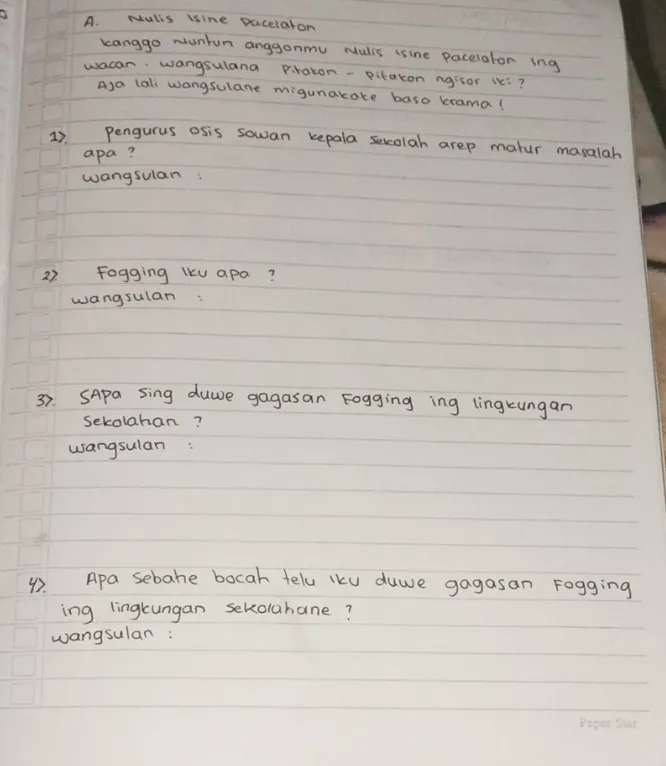 A. Nulis isine Pacelaton
kanggo Nuntun anggonmu Nulis isine pacelaton ing
wacan. wangsulana Pitakon - Pitakon ngisor iki ?
Aja lali wangsulane migunakake baso krama !
1). Pengurus osis sowan kepala sekolah arep matur masalah
apa ?
wangsulan :
2) Fogging iku apa ?
wangsulan :
3). SApa sing duwe gagasan Fogging ing lingkungan
Sekolahan ?
wangsulan :
4). Apa sebahe bocah telu iku duwe gagasan Fogging
ing lingkungan sekolahane ?
wangsulan :
Paper Star